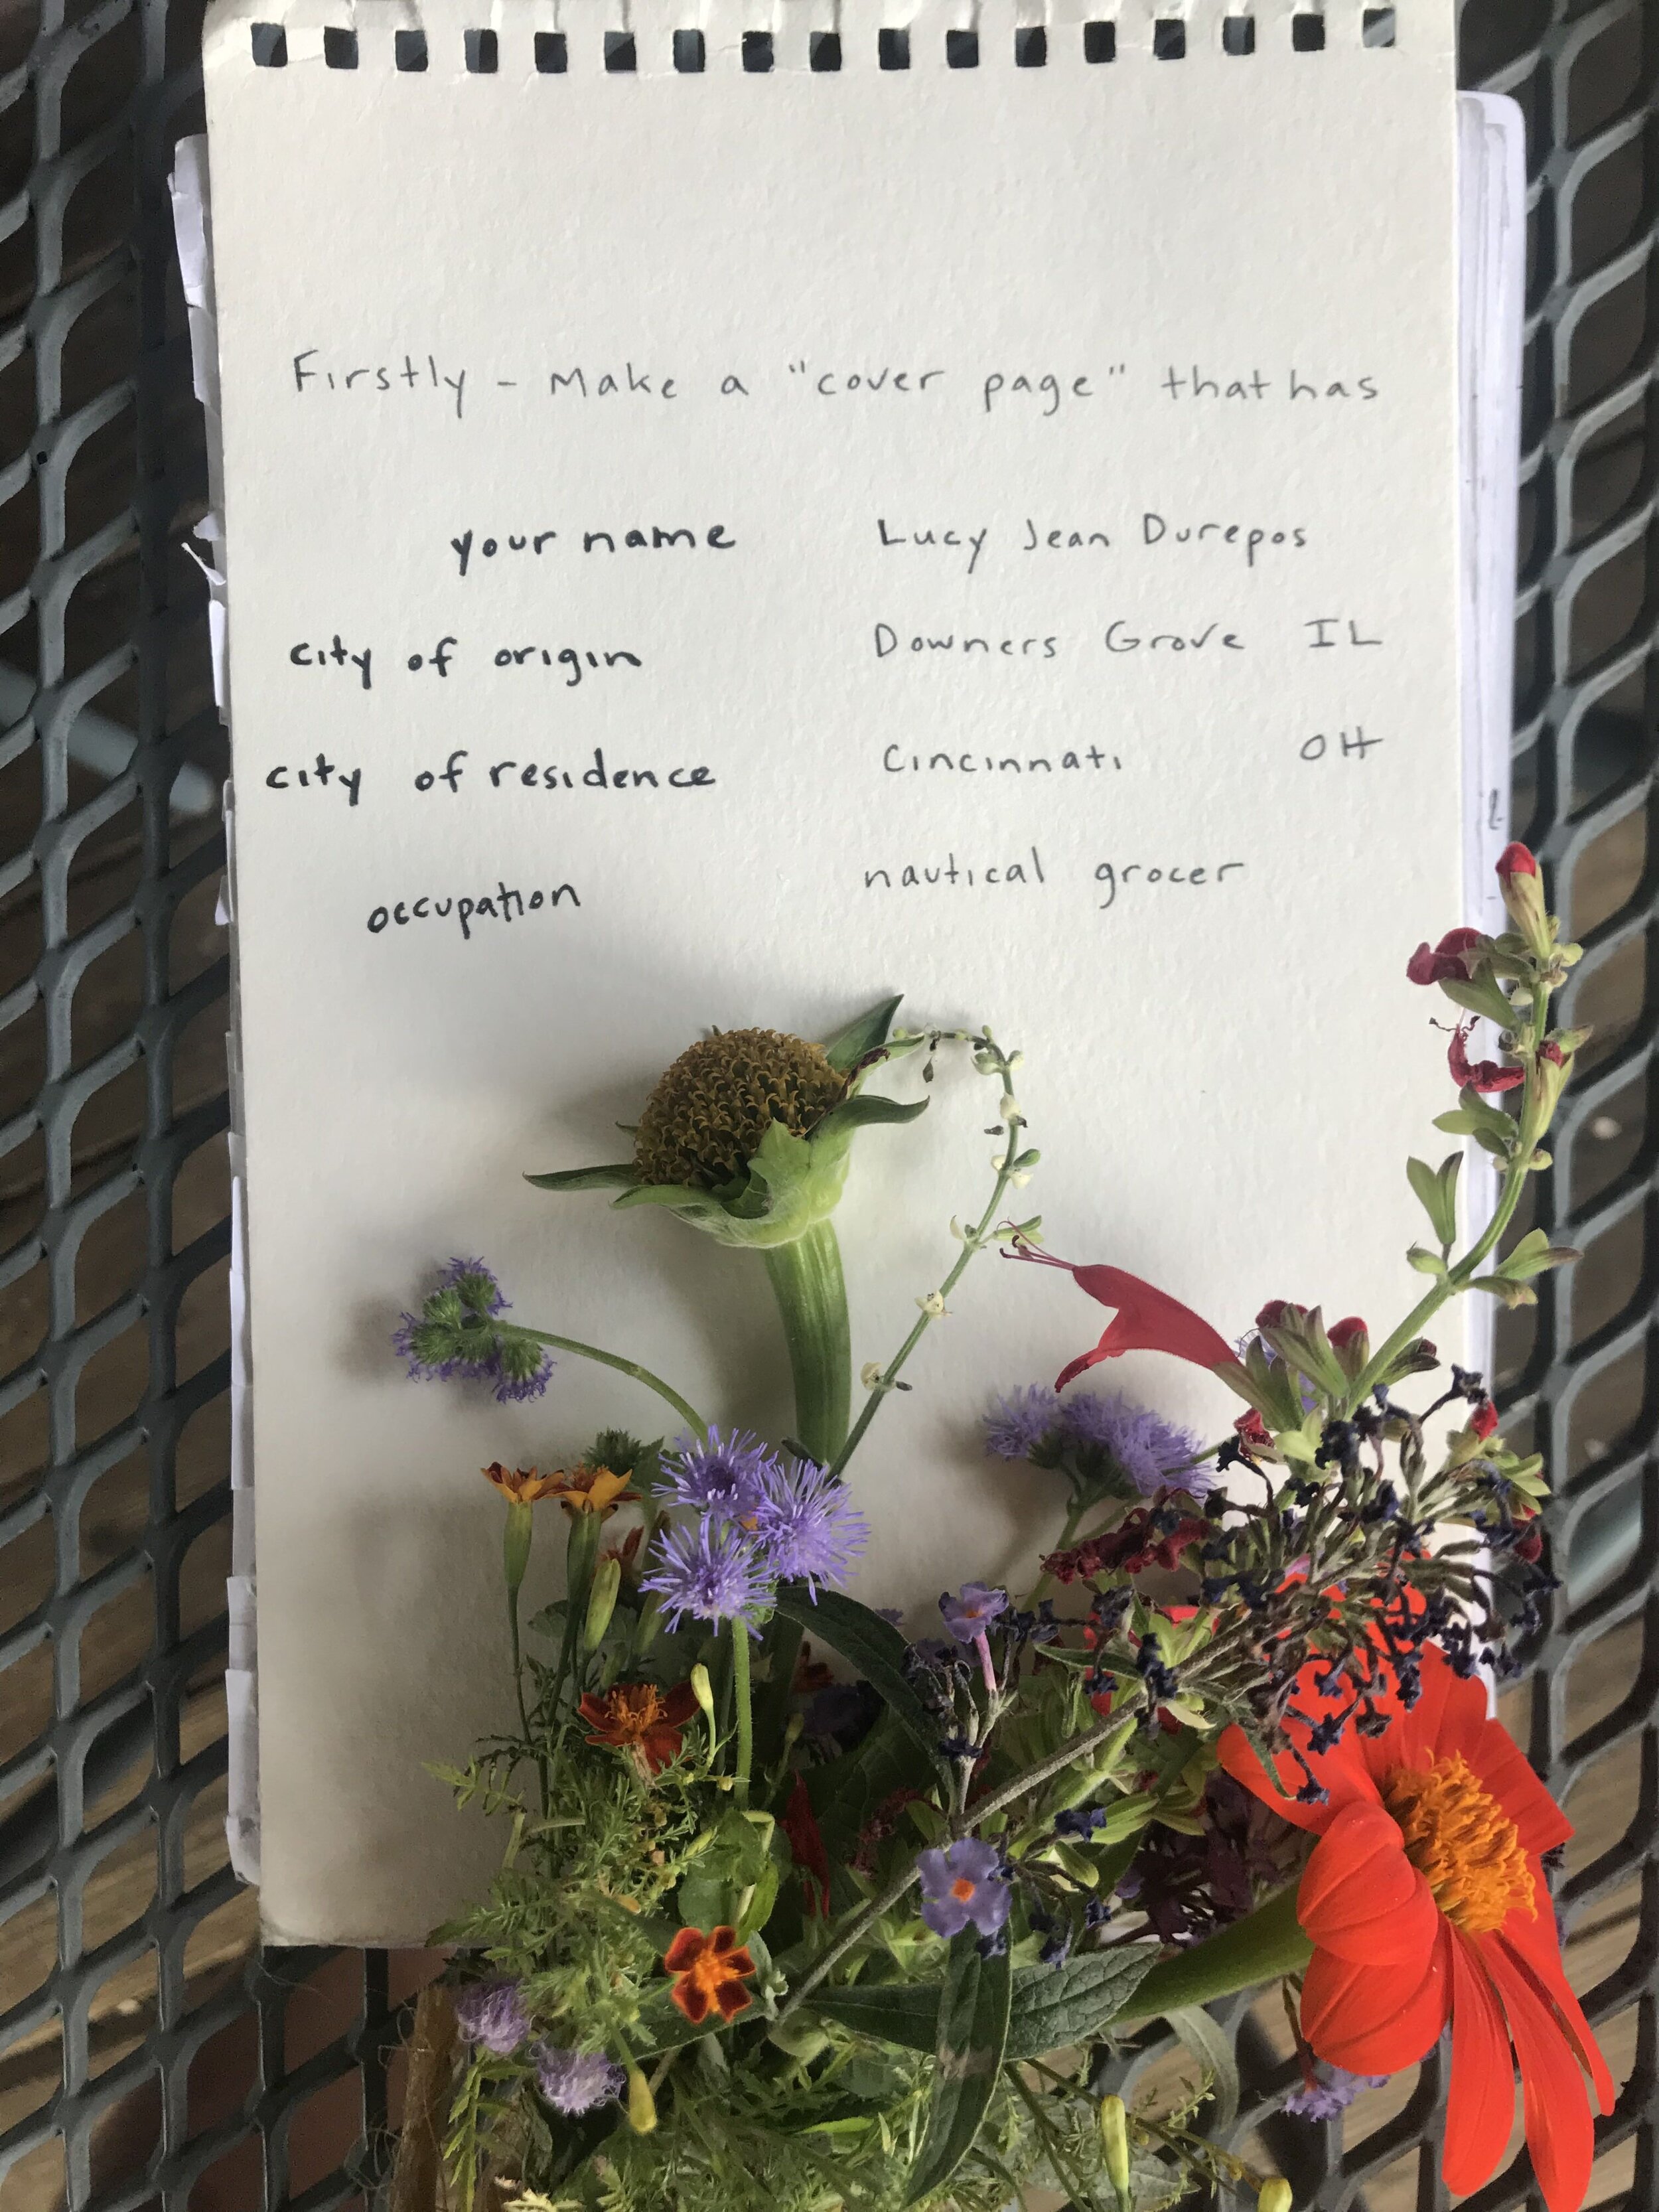 Firstly - Make a "cover page" that has
your name Lucy Jean Durepos
city of origin Downers Grove IL
city of residence Cincinnati OH
occupation nautical grocer